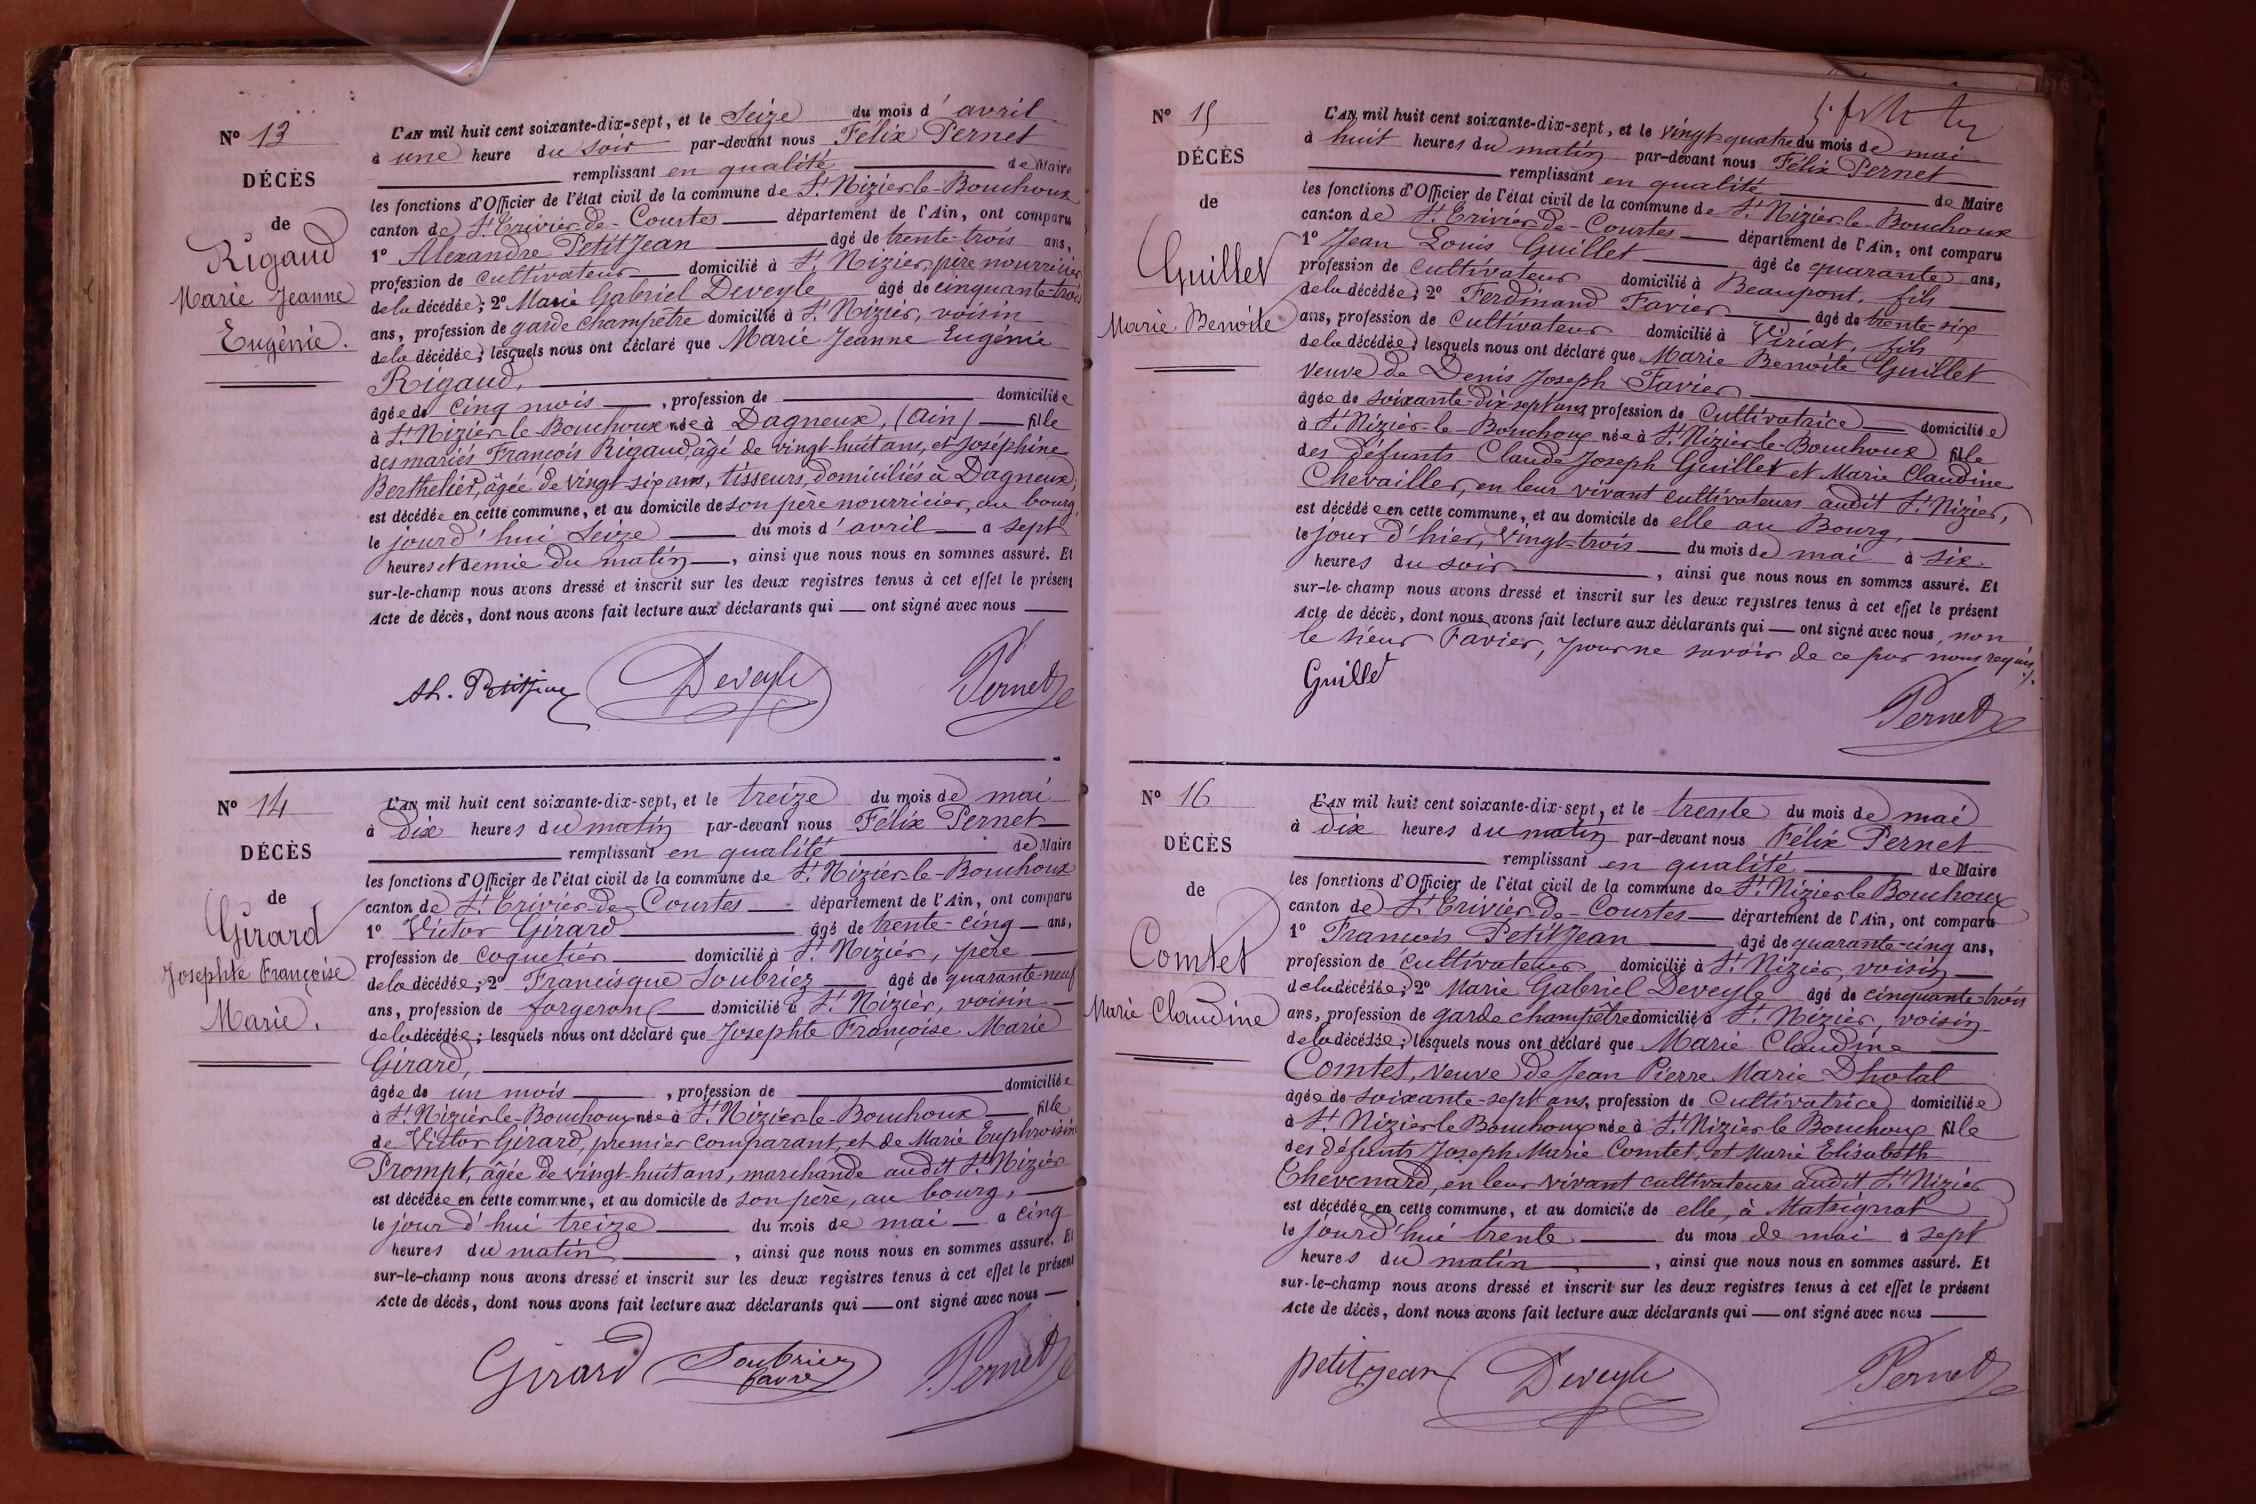 Nº 13
DÉCÈS
de
Rigaud
Marie Jeanne
Eugénie.
L'AN mil huit cent soixante-dix-sept, et le Seize du mois d'avril
à une heure du soir par-devant nous Félix Pernet
remplissant en qualité de Maire
les fonctions d'Officier de l'état civil de la commune de St Nizier-le-Bouchoux
canton de St Trivier-de-Courtes département de l'Ain, ont comparu
1º Alexandre Petitjean âgé de trente-trois ans,
profession de cultivateur domicilié à St Nizier, père nourricier
de la décédée; 2º Marie Gabriel Deveyle âgé de cinquante-trois
ans, profession de garde champêtre domicilié à St Nizier, voisin
de la décédée; lesquels nous ont déclaré que Marie Jeanne Eugénie
Rigaud,
âgée de cinq mois, profession de domiciliée
à St Nizier-le-Bouchoux née à Dagneux, (Ain) fille
des mariés François Rigaud, âgé de vingt-huit ans, et Joséphine
Berthelier, âgée de vingt-six ans, tisseurs, domiciliés à Dagneux,
est décédée en cette commune, et au domicile de son père nourricier, au bourg,
le jourd'hui Seize du mois d'avril à sept
heures et demie du matin, ainsi que nous nous en sommes assuré. Et
sur-le-champ nous avons dressé et inscrit sur les deux registres tenus à cet effet le présent
Acte de décès, dont nous avons fait lecture aux déclarants qui ont signé avec nous
Al. Petitjean Deveyle Pernet
Nº 14
DÉCÈS
de
Girard
Josephte Françoise
Marie.
L'AN mil huit cent soixante-dix-sept, et le treize du mois de mai
à dix heures du matin par-devant nous Félix Pernet
remplissant en qualité de Maire
les fonctions d'Officier de l'état civil de la commune de St Nizier-le-Bouchoux
canton de St Trivier-de-Courtes département de l'Ain, ont comparu
1º Victor Girard âgé de trente-cinq ans,
profession de coquetier domicilié à St Nizier, père
de la décédée; 2º Francisque Soubriez âgé de quarante-neuf
ans, profession de forgeron domicilié à St Nizier, voisin
de la décédée; lesquels nous ont déclaré que Josephte Françoise Marie
Girard,
âgée de un mois, profession de domiciliée
à St Nizier-le-Bouchoux née à St Nizier-le-Bouchoux fille
de Victor Girard, premier comparant, et de Marie Euphroisine
Prompt, âgée de vingt-huit ans, marchande audit St Nizier
est décédée en cette commune, et au domicile de son père, au bourg,
le jourd'hui treize du mois de mai à cinq
heures du matin, ainsi que nous nous en sommes assuré. Et
sur-le-champ nous avons dressé et inscrit sur les deux registres tenus à cet effet le présent
Acte de décès, dont nous avons fait lecture aux déclarants qui ont signé avec nous
Girard Soubriez Pernet
Favre
Nº 15
DÉCÈS
de
Guillet
Marie Benoite
L'AN mil huit cent soixante-dix-sept, et le vingt-quatre du mois de mai
à huit heures du matin par-devant nous Félix Pernet
remplissant en qualité de Maire
les fonctions d'Officier de l'état civil de la commune de St Nizier-le-Bouchoux
canton de St Trivier-de-Courtes département de l'Ain, ont comparu
1º Jean Louis Guillet âgé de quarante ans,
profession de cultivateur domicilié à Beaupont, fils
de la décédée; 2º Ferdinand Favier âgé de trente-six
ans, profession de cultivateur domicilié à Viriat, fils
de la décédée; lesquels nous ont déclaré que Marie Benoite Guillet
veuve de Denis Joseph Favier
âgée de soixante-dix-sept ans, profession de Cultivatrice domiciliée
à St Nizier-le-Bouchoux née à St Nizier-le-Bouchoux fille
des défunts Claude Joseph Guillet et Marie Claudine
Chevailler, en leur vivant cultivateurs audit St Nizier,
est décédée en cette commune, et au domicile de elle au Bourg,
le jour d'hier, vingt-trois du mois de mai à six
heures du soir, ainsi que nous nous en sommes assuré. Et
sur-le-champ nous avons dressé et inscrit sur les deux registres tenus à cet effet le présent
Acte de décès, dont nous avons fait lecture aux déclarants qui ont signé avec nous, non
le sieur Favier, pour ne savoir de ce par nous requis./.
Guillet
Pernet
Nº 16
DÉCÈS
de
Comtet
Marie Claudine
L'AN mil huit cent soixante-dix-sept, et le trente du mois de mai
à dix heures du matin par-devant nous Félix Pernet
remplissant en qualité de Maire
les fonctions d'Officier de l'état civil de la commune de St Nizier le Bouchoux
canton de St Trivier-de-Courtes département de l'Ain, ont comparu
1º François Petitjean âgé de quarante-cinq ans,
profession de cultivateur domicilié à St Nizier, voisin
de la décédée; 2º Marie Gabriel Deveyle âgé de cinquante-trois
ans, profession de garde champêtre domicilié à St Nizier, voisin
de la décédée; lesquels nous ont déclaré que Marie Claudine
Comtet, veuve de Jean Pierre Marie Dhotal
âgée de soixante-sept ans, profession de Cultivatrice domiciliée
à St Nizier le Bouchoux née à St Nizier le Bouchoux fille
des défunts Joseph Marie Comtet, et Marie Elisabeth
Chevenard, en leur vivant cultivateurs audit St Nizier
est décédée en cette commune, et au domicile de elle, à Matrignat
le jourd'hui trente du mois de mai à sept
heures du matin, ainsi que nous nous en sommes assuré. Et
sur-le-champ nous avons dressé et inscrit sur les deux registres tenus à cet effet le présent
Acte de décès, dont nous avons fait lecture aux déclarants qui ont signé avec nous
petitjean Deveyle Pernet